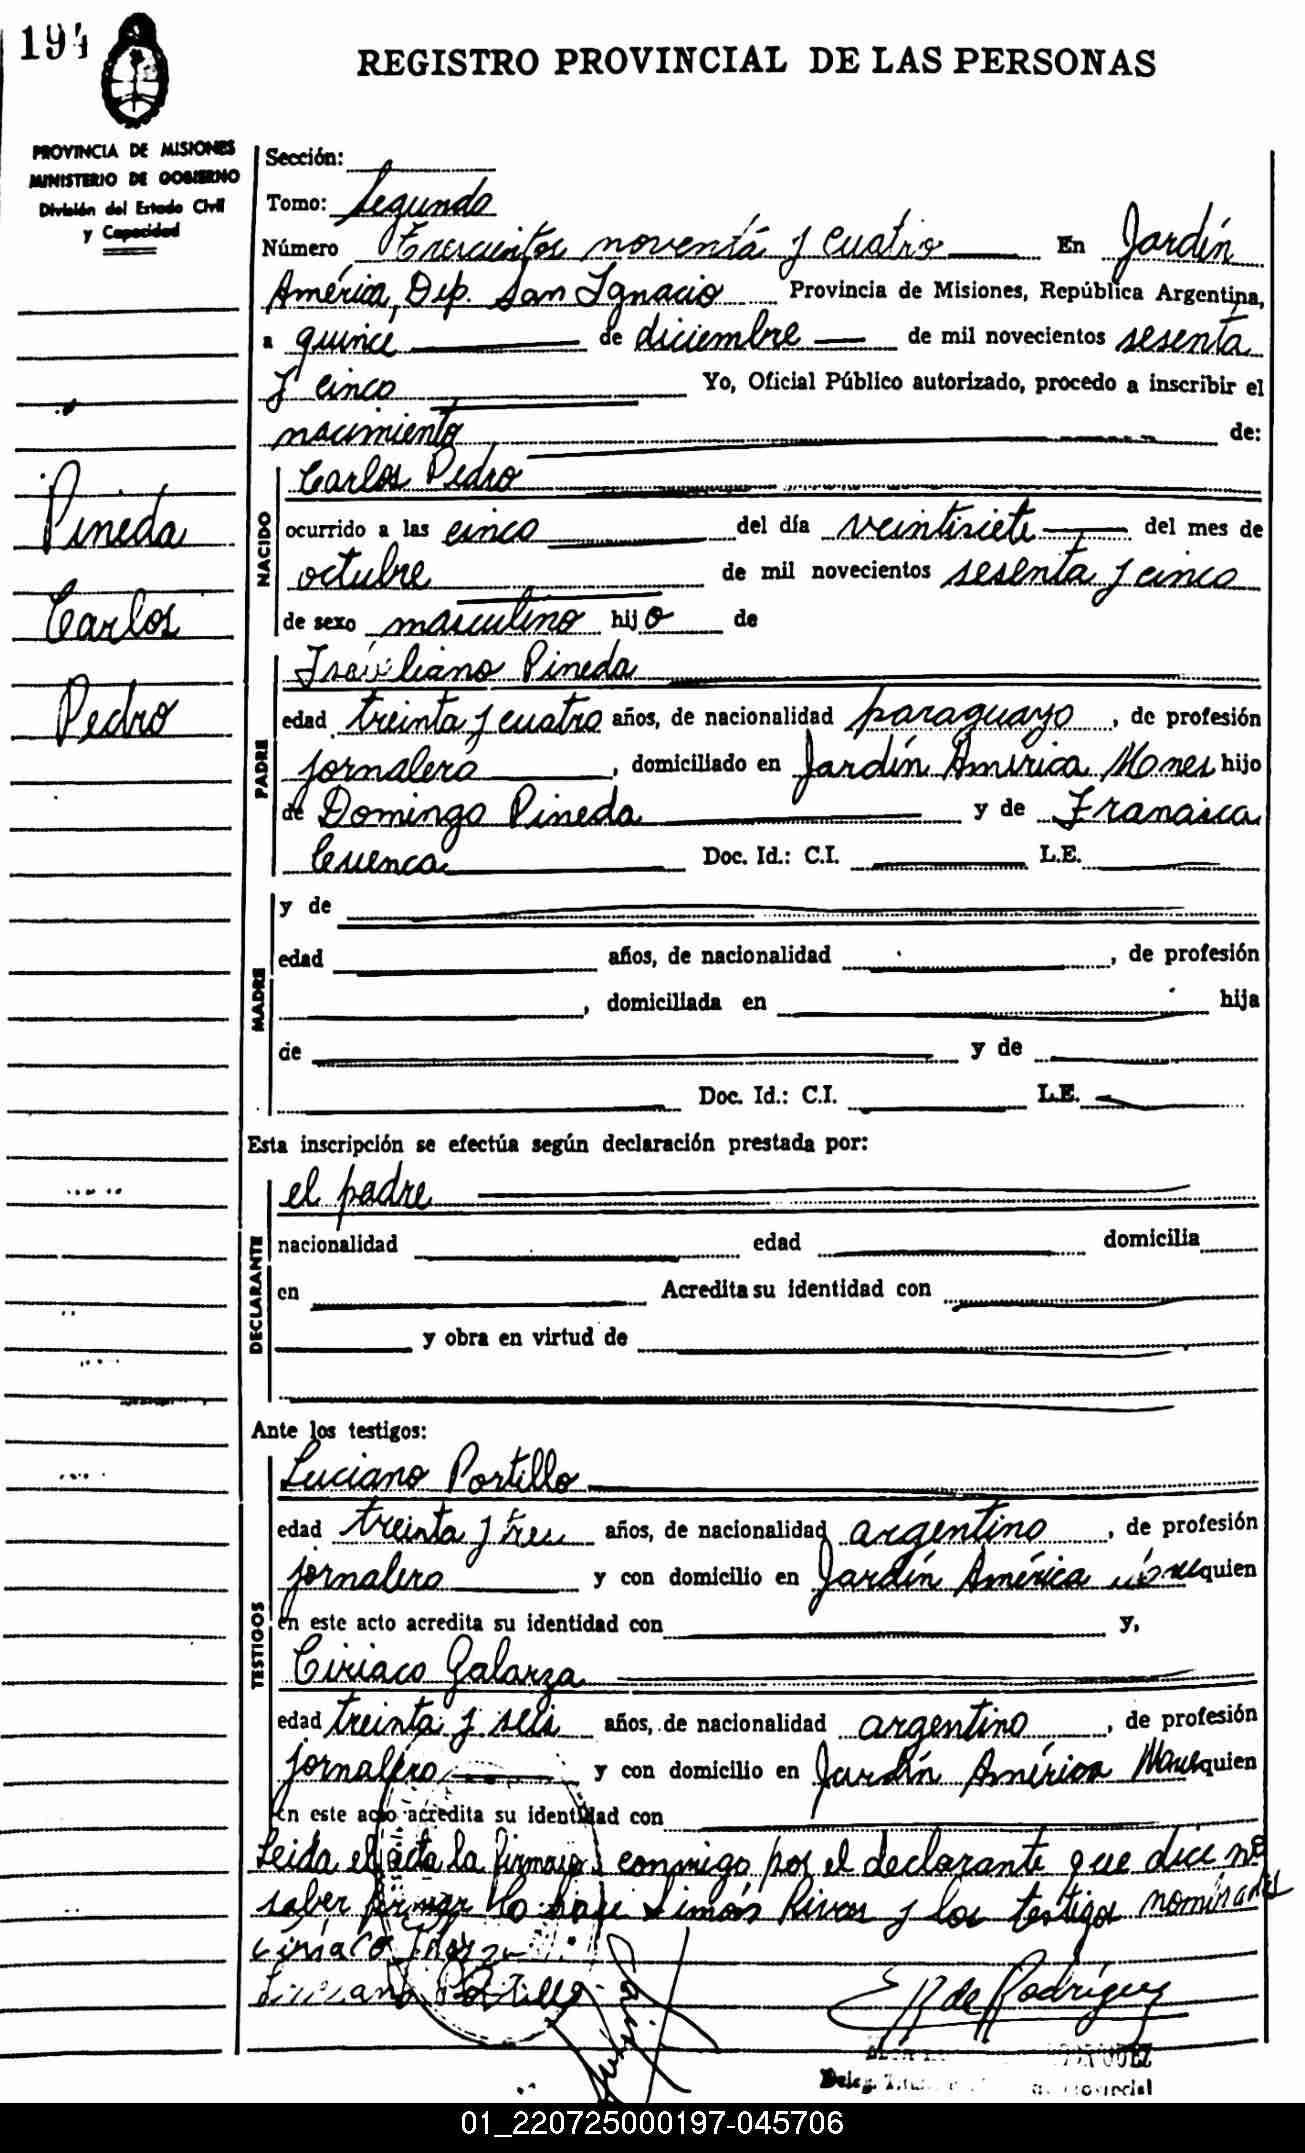 194
REGISTRO PROVINCIAL DE LAS PERSONAS
PROVINCIA DE MISIONES
MINISTERIO DE GOBIERNO
División del Estado Civil
y Capacidad
Sección:
Tomo: Segundo
Número Trescientos noventa y cuatro En Jardín
América, Dep. San Ignacio Provincia de Misiones, República Argentina,
a quince de diciembre de mil novecientos sesenta
y cinco Yo, Oficial Público autorizado, procedo a inscribir el
nacimiento de:
Pineda
Carlos
Pedro
NACIDO
Carlos Pedro
ocurrido a las cinco del día veintisiete del mes de
octubre de mil novecientos sesenta y cinco
de sexo masculino hijo de
PADRE
Pineda
edad treinta y cuatro años, de nacionalidad paraguayo, de profesión
jornalero, domiciliado en Jardín América Mones hijo
de Domingo Pineda y de Francisca
Cuenca Doc. Id.: C.I. L.E.
MADRE
y de
edad años, de nacionalidad , de profesión
, domiciliada en hija
de y de
Doc. Id.: C.I. L.E.
Esta inscripción se efectúa según declaración prestada por:
DECLARANTE
el padre
nacionalidad edad domicilia
en Acredita su identidad con
y obra en virtud de
Ante los testigos:
TESTIGOS
Luciano Portillo
edad treinta y tres años, de nacionalidad argentino, de profesión
jornalero y con domicilio en Jardín América quien
en este acto acredita su identidad con y,
Ciriaco Galarza
edad treinta y seis años, de nacionalidad argentino, de profesión
jornalero y con domicilio en Jardín América Mones quien
en este acto acredita su identidad con
Leida el acta la firma conmigo por el declarante que dice no
saber firmar lo hace Simón Rivas y los testigos nominados
Ciriaco
Luciano Portillo
E R de Rodríguez
01_220725000197-045706